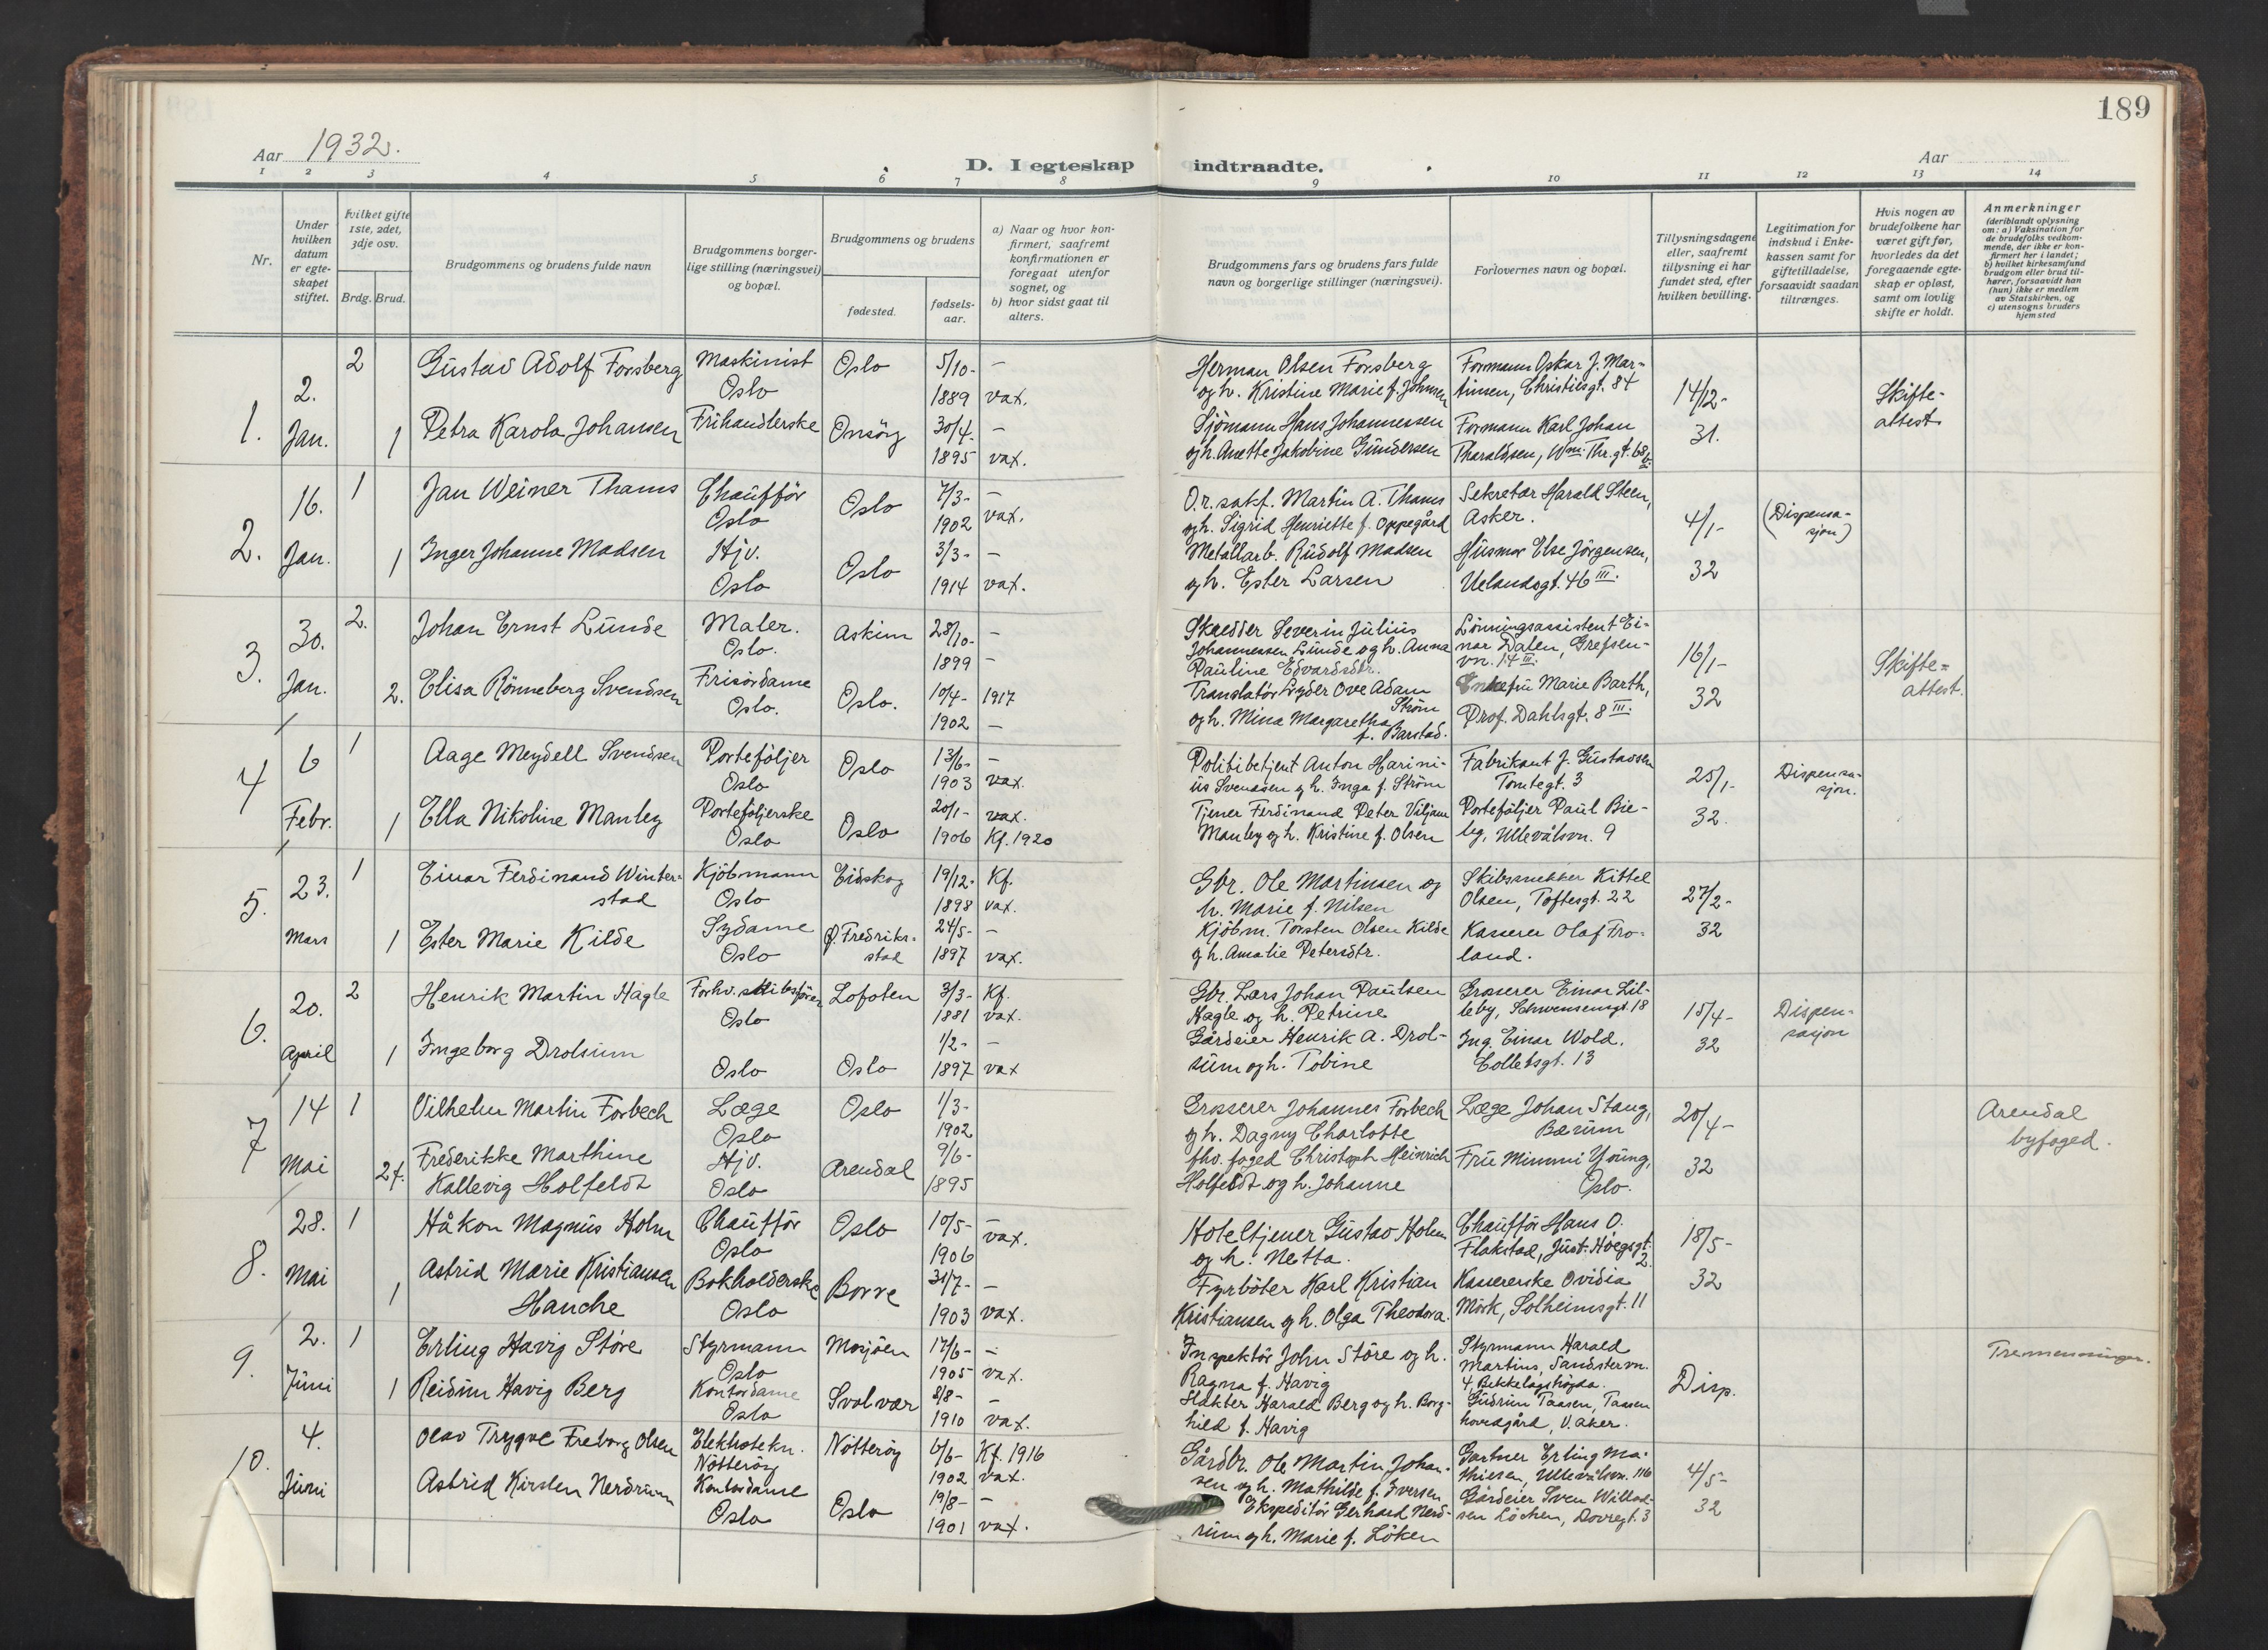 189
Aar 1932.
D. I egteskap indtraadte.
Aar
1 2 3 4 5 6 7 8 9 10 11 12 13 14
Nr.
Under hvilken datum er egteskapet stiftet.
Hvilket gifte 1ste, 2det, 3dje osv.
Brdg. Brud.
Brudgommens og brudens fulde navn
Brudgommens borgerlige stilling (næringsvei) og bopæl.
Brudgommens og brudens
fødested.
fødselsaar.
a) Naar og hvor konfirmert, saafremt konfirmationen er foregaat utenfor sognet, og
b) hvor sidst gaat til alters.
Brudgommens fars og brudens fars fulde navn og borgerlige stillinger (næringsvei).
Forlovernes navn og bopæl.
Tillysningsdagene eller, saafremt tillysning ei har fundet sted, efter hvilken bevilling.
Legitimation for indskud i Enkekassen samt for giftetilladelse, forsaavidt saadan tiltrænges.
Hvis nogen av brudefolkene har været gift før, hvorledes da det foregaaende egteskap er opløst, samt om lovlig skifte er holdt.
Anmerkninger
(deriblandt oplysning om: a) Vaksination for de brudefolks vedkommende, der ikke er konfirmert her i landet;
b) hvilket kirkesamfund brudgom eller brud tilhører, forsaavidt han (hun) ikke er medlem av Statskirken, og
c) utensogns bruders hjemsted
1. 2. Jan.
2 Gustav Adolf Forsberg Maskinist Oslo Oslo 5/10- 1889 – vax.
Herman Olsen Forsberg og h. Kristine Marie f. Johnsen
Formann Oskar J. Martinsen, Christiesgt. 84
14/12- 31.
Skifteattest.
1 Petra Karola Johansen Frihandlerske Onsöy 30/4- 1895 – vax.
Sjömann Hans Johannessen og h. Anette Jakobine Gundersen
Formann Karl Johan Tharaldsen, Wm. Thr. gt. 68
2. 16. Jan.
1 Jan Weiner Thams Chauffför Oslo Oslo 7/3- 1902 – vax.
O.r. sakf. Martin A. Thams og h. Sigrid Henriette f. Oppegård
Sekretær Harald Steen, Asker.
4/1- 32
(Dispensasjon)
1 Inger Johanne Madsen Hjv. Oslo Oslo 3/3- 1914 – vax.
Metallarb. Rudolf Madsen og h. Ester Larsen
Husmor Else Jörgensen, Uelandsgt. 46 III.
3. 30. Jan.
2. Johan Ernst Lunde Maler. Oslo. Askim 28/10- 1899 – –
Skredder Severin Julius Johannessen Lunde og h. Anna Pauline Edvardsdtr.
Lönningsassistent Einar Dalen, Grefsenvn. 14 III.
16/1- 32
Skifteattest.
2. Elisa Rönneberg Svendsen Frisördame Oslo. Oslo. 10/4- 1902 1917 –
Translatör Lyder Ove Adam Ström og h. Mina Margaretha f. Barstad.
Enkefru Marie Barth, Prof. Dahlsgt. 8 III.
4 6 Febr.
1 Aage Meydell Svendsen Porteföljer Oslo Oslo 13/6- 1903 – vax.
Politibetjent Anton Harinius Svendsen og h. Inga f. Ström
Fabrikant J. Gustavsen Tomtegt. 3
25/1- 32.
Dispensasjon.
1 Ella Nikoline Manley Porteföljerske Oslo Oslo 20/1- 1906 vax. Kf. 1920
Tjener Ferdinand Peter Viljam Manley og h. Kristine f. Olsen
Porteföljer Paul Bieleg, Ullevålsvn. 9
5. 23. Mars
1 Einar Ferdinand Winterstad Kjöbmann Oslo Eidskog 19/12- 1898 Kf. vax.
Gbr. Ole Martinsen og h. Marie f. Nilsen
Skibssnekker Kittel Olsen, Toftesgt. 22
27/2- 32
1 Ester Marie Kilde Sydame Oslo Ø. Fredrikstad 24/5- 1897 – vax.
Kjöbm. Torsten Olsen Kilde og h. Amalie Petersdtr.
Kasserer Olaf Froland.
6. 20. April
2 Henrik Martin Hagle Forhv. skibsfører Oslo Lofoten 3/3- 1881 Kf. vax.
Gbr. Lars Johan Paulsen Hagle og h. Petrine
Grosserer Einar Lilleby, Schwensensgt. 18
15/4- 32
Dispensasjon
1 Ingeborg Drolsum Oslo Oslo 1/2- 1897 – vax
Gårdeier Henrik A. Drolsum og h. Tobine
Ing. Einar Wold, Colletsgt. 13
7 14 Mai
1 Vilhelm Martin Forbech Læge Oslo Oslo 1/3- 1902
Grosserer Johannes Forbech og h. Dagny Charlotte
Læge Johan Stang, Bærum
20/4- 32
Arendal byfoged.
2f. Frederikke Marthine Kallevig Holfeldt Hjv. Oslo Arendal 9/6- 1895
fhv. foged Christoph Heinrich Holfeldt og h. Johanne
Fru Mimmi Young, Oslo.
8. 28. Mai
1 Håkon Magnus Holm Chaufför Oslo Oslo 10/5- 1906 – vax.
Hoteltjener Gustav Holm og h. Netta.
Chaufför Hans O. Flakstad, Just. Höegsgt. 2.
18/5- 32
1 Astrid Marie Kristiansen Hanche Bokholderske Oslo Borre 31/7- 1903 – vax.
Fyrböter Karl Kristian Kristiansen og h. Olga Theodora.
Kassererske Ovidia Mörk, Solheimsgt. 11
9. 2. Juni
1 Erling Havig Störe Styrmann Oslo Mosjöen 17/6- 1905 – vax.
Inspektör John Störe og h. Ragna f. Havig
Styrmann Harald Martins, Sandstervn. 4, Bekkelagshögda.
Disp.
Tremenninger.
1 Reidun Havig Berg Kontordame Oslo Svolvær 8/8- 1910 – vax.
Slakter Harald Berg og h. Borghild f. Havig
Gudrun Taasen, Taasen hovedgård, V. Aker.
10. 4. Juni
Olav Trygve Freborg Olsen Elektrotekn. Nötteröy Nötteröy 6/6- 1902 Kf. 1916 vax.
Gårdbr. Ole Martin Johansen og h. Mathilde f. Iversen
Gartner Erling Mathiesen, Ullevålsvn. 116
4/5- 32
Astrid Kirsten Nerdrum Kontordame Oslo Oslo 19/8- 1901 – vax.
Ekspeditör Gerhard Nerdrum og h. Marie f. Löken
Gårdeier Sven Willadsen Löchen, Dovregt. 3